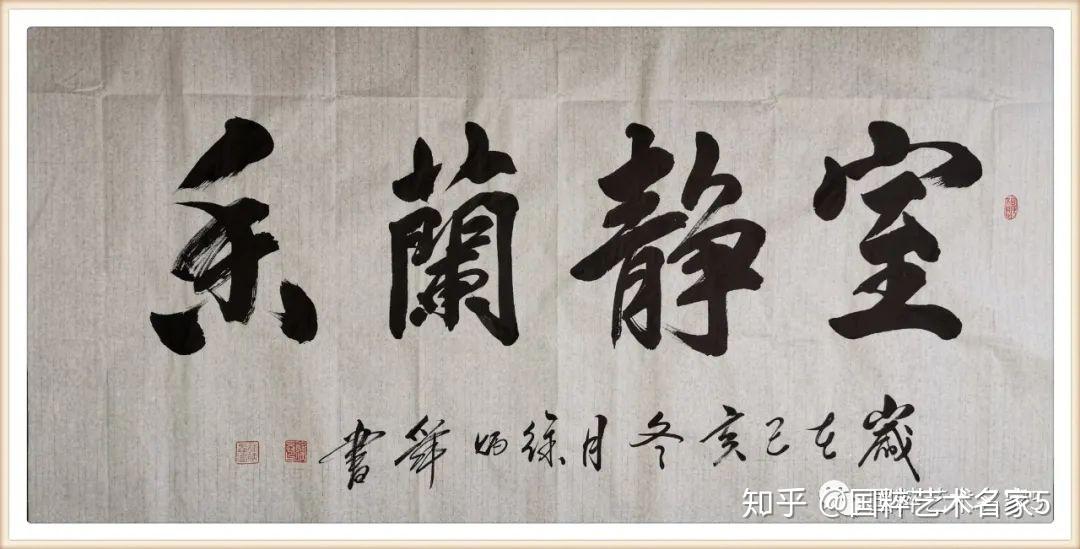 室静蘭香
歲在己亥冬月徐炳書
知乎 @国粹艺术名家5